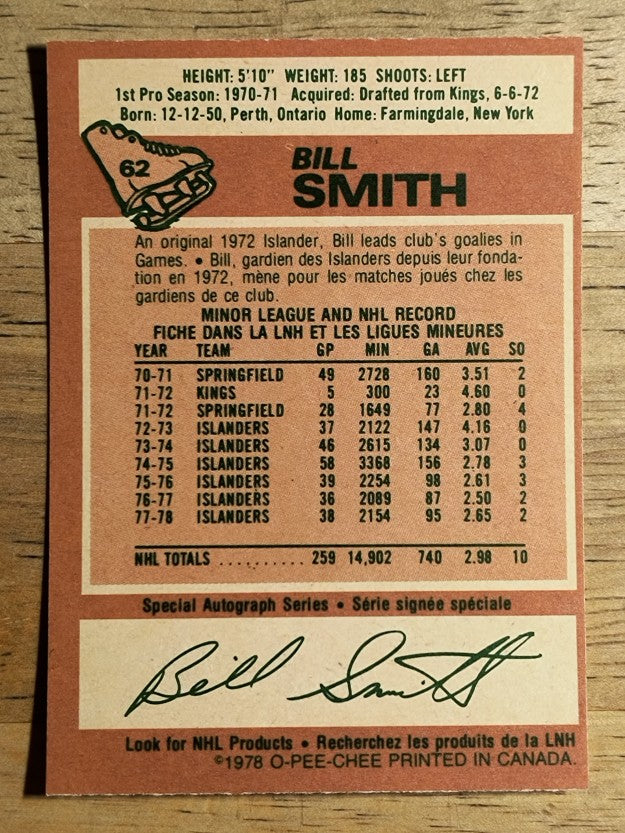 HEIGHT: 5'10" WEIGHT: 185 SHOOTS: LEFT
1st Pro Season: 1970-71 Acquired: Drafted from Kings, 6-6-72
Born: 12-12-50, Perth, Ontario Home: Farmingdale, New York
62
BILL
SMITH
An original 1972 Islander, Bill leads club's goalies in
Games. • Bill, gardien des Islanders depuis leur fonda-
tion en 1972, mène pour les matches joués chez les
gardiens de ce club.
MINOR LEAGUE AND NHL RECORD
FICHE DANS LA LNH ET LES LIGUES MINEURES
YEAR TEAM GP MIN GA AVG SO
70-71 SPRINGFIELD 49 2728 160 3.51 2
71-72 KINGS 5 300 23 4.60 0
71-72 SPRINGFIELD 28 1649 77 2.80 4
72-73 ISLANDERS 37 2122 147 4.16 0
73-74 ISLANDERS 46 2615 134 3.07 0
74-75 ISLANDERS 58 3368 156 2.78 3
75-76 ISLANDERS 39 2254 98 2.61 3
76-77 ISLANDERS 36 2089 87 2.50 2
77-78 ISLANDERS 38 2154 95 2.65 2
NHL TOTALS .......... 259 14,902 740 2.98 10
Special Autograph Series • Série signée spéciale
Bill Smith
Look for NHL Products • Recherchez les produits de la LNH
©1978 O-PEE-CHEE PRINTED IN CANADA.